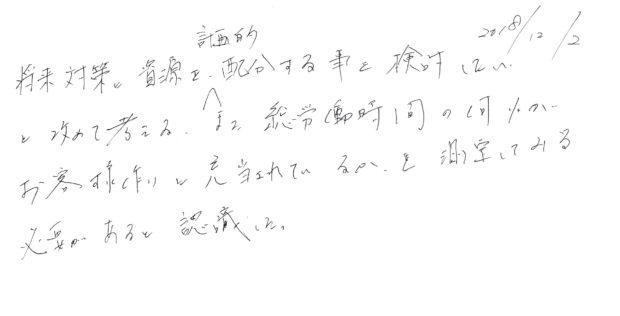 2018/12/2
計画的
将来対策に資源を配分する事を検討したい
と改めて考える。また総労働時間の何%が
お客様作りに充当されているか、を測定してみる
必要があると認識した。